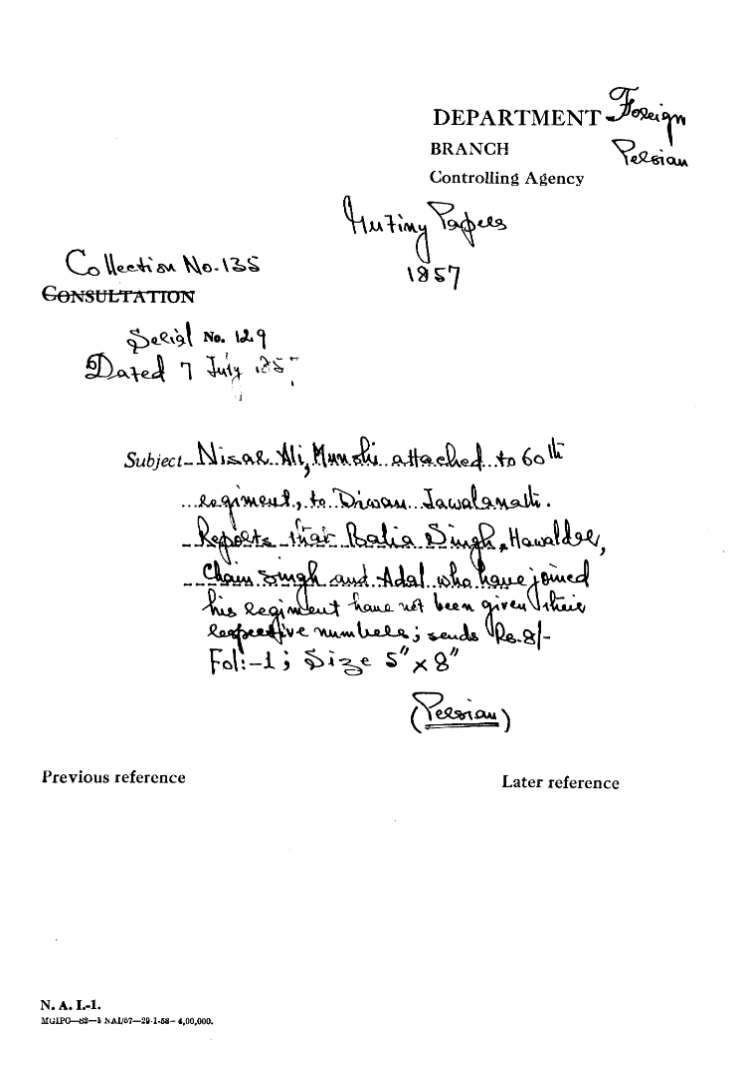 DEPARTMENT Foreign
BRANCH Persian
Controlling Agency
Mutiny Papers
1857
Collection No. 135
CONSULTATION
Serial No. 129
Dated 7 July 185
Subject Nisar Ali, Munshi attached to 60th
regiment, to Diwan Jawalanath.
Reports that Balia Singh, Hawalder,
Chain Singh and Adal who have joined
his regiment have not been given their
respective numbers; sends Rs. 8/-
Fol:-1; Size 5" x 8"
(Persian)
Previous reference
Later reference
N. A. I.-1.
MGIPC—82—1 NAI/57—29-1-58—4,00,000.